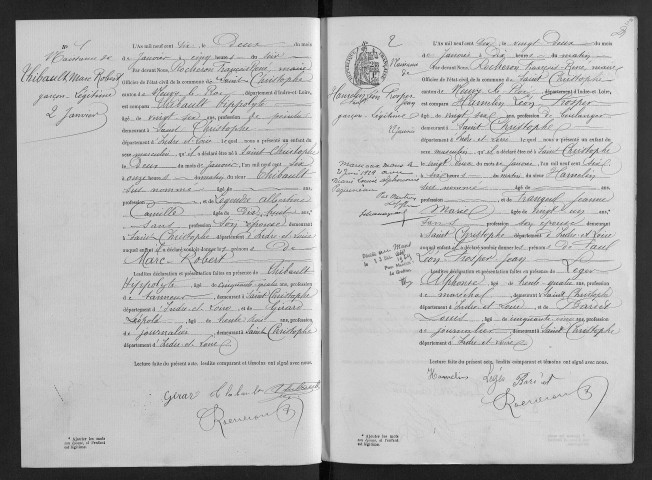 N° 1
Naissance de
Thibault Marc Robert
garçon légitime
2 Janvier
L'An mil neuf cent Six, le Deux du mois
de Janvier à cinq heures du soir
Par devant Nous, Rocheron François René, maire
Officier de l'état-civil de la commune de Saint Christophe
canton de Neuvy le Roi, département d'Indre-et-Loire,
est comparu Thibault Hippolyte
âgé de vingt six ans, profession de peintre
demeurant à Saint Christophe
département d'Indre et Loire qui nous a présenté un enfant du
sexe masculin, qu'il a déclaré être né à Saint Christophe
le Deux du mois de janvier, l'an mil neuf cent Six
à onze heures du matin, de Thibault
sus nommé, âgé de ans,
profession et de Legendre
Camille, âgée de Dix huit ans,
Sans profession son épouse demeurant
à Saint Christophe département d'Indre et Loire
auquel enfant il a déclaré vouloir donner les prénoms de
Marc Robert
Lesdites déclaration et présentation faites en présence de Thibault
Hippolyte, âgé de cinquante quatre ans, profession
de, demeurant à Saint Christophe
département d'Indre et Loire et de Girard
Léopold, âgé de trente huit ans, profession
de journalier, demeurant à Saint Christophe
département d'Indre et Loire
Lecture faite du présent acte, lesdits comparant et témoins ont signé avec nous.
Girar Thibault
Rocheron
* Ajouter les mots
son épouse, si l'enfant
est légitime.
2
Naissance
de
Hamelin Léon Prosper
Jean
garçon légitime
22 Janvier
L'An mil neuf cent Six, le vingt Deux du mois
de Janvier à dix heures du matin
Par devant Nous, Rocheron François René, maire
Officier de l'état-civil de la commune de Saint Christophe
canton de Neuvy le Roi, département d'Indre-et-Loire,
est comparu Hamelin Léon Prosper
âgé de vingt six ans, profession de boulanger
demeurant à Saint Christophe
département d'Indre et Loire qui nous a présenté un enfant du
sexe masculin, qu'il a déclaré être né à Saint Christophe
le vingt Deux du mois de Janvier, l'an mil neuf cent Six
à six heures du matin, de Hamelin
sus nommé, âgé de ans,
profession et de Franquet Jeanne
Marie, âgée de vingt un ans,
Sans profession son épouse demeurant
à Saint Christophe département d'Indre et Loire
auquel enfant il a déclaré vouloir donner les prénoms de Paul
Léon Prosper Jean
Lesdites déclaration et présentation faites en présence de Léger
Alphonse, âgé de trente quatre ans, profession
de maréchal, demeurant à Saint Christophe
département d'Indre et Loire et de
Louis, âgé de cinquante ans, profession
de journalier, demeurant à Saint Christophe
département d'Indre et Loire
Lecture faite du présent acte, lesdits comparant et témoins ont signé avec nous.
Hamelin Léger
Rocheron
* Ajouter les mots
son épouse, si l'enfant
est légitime.